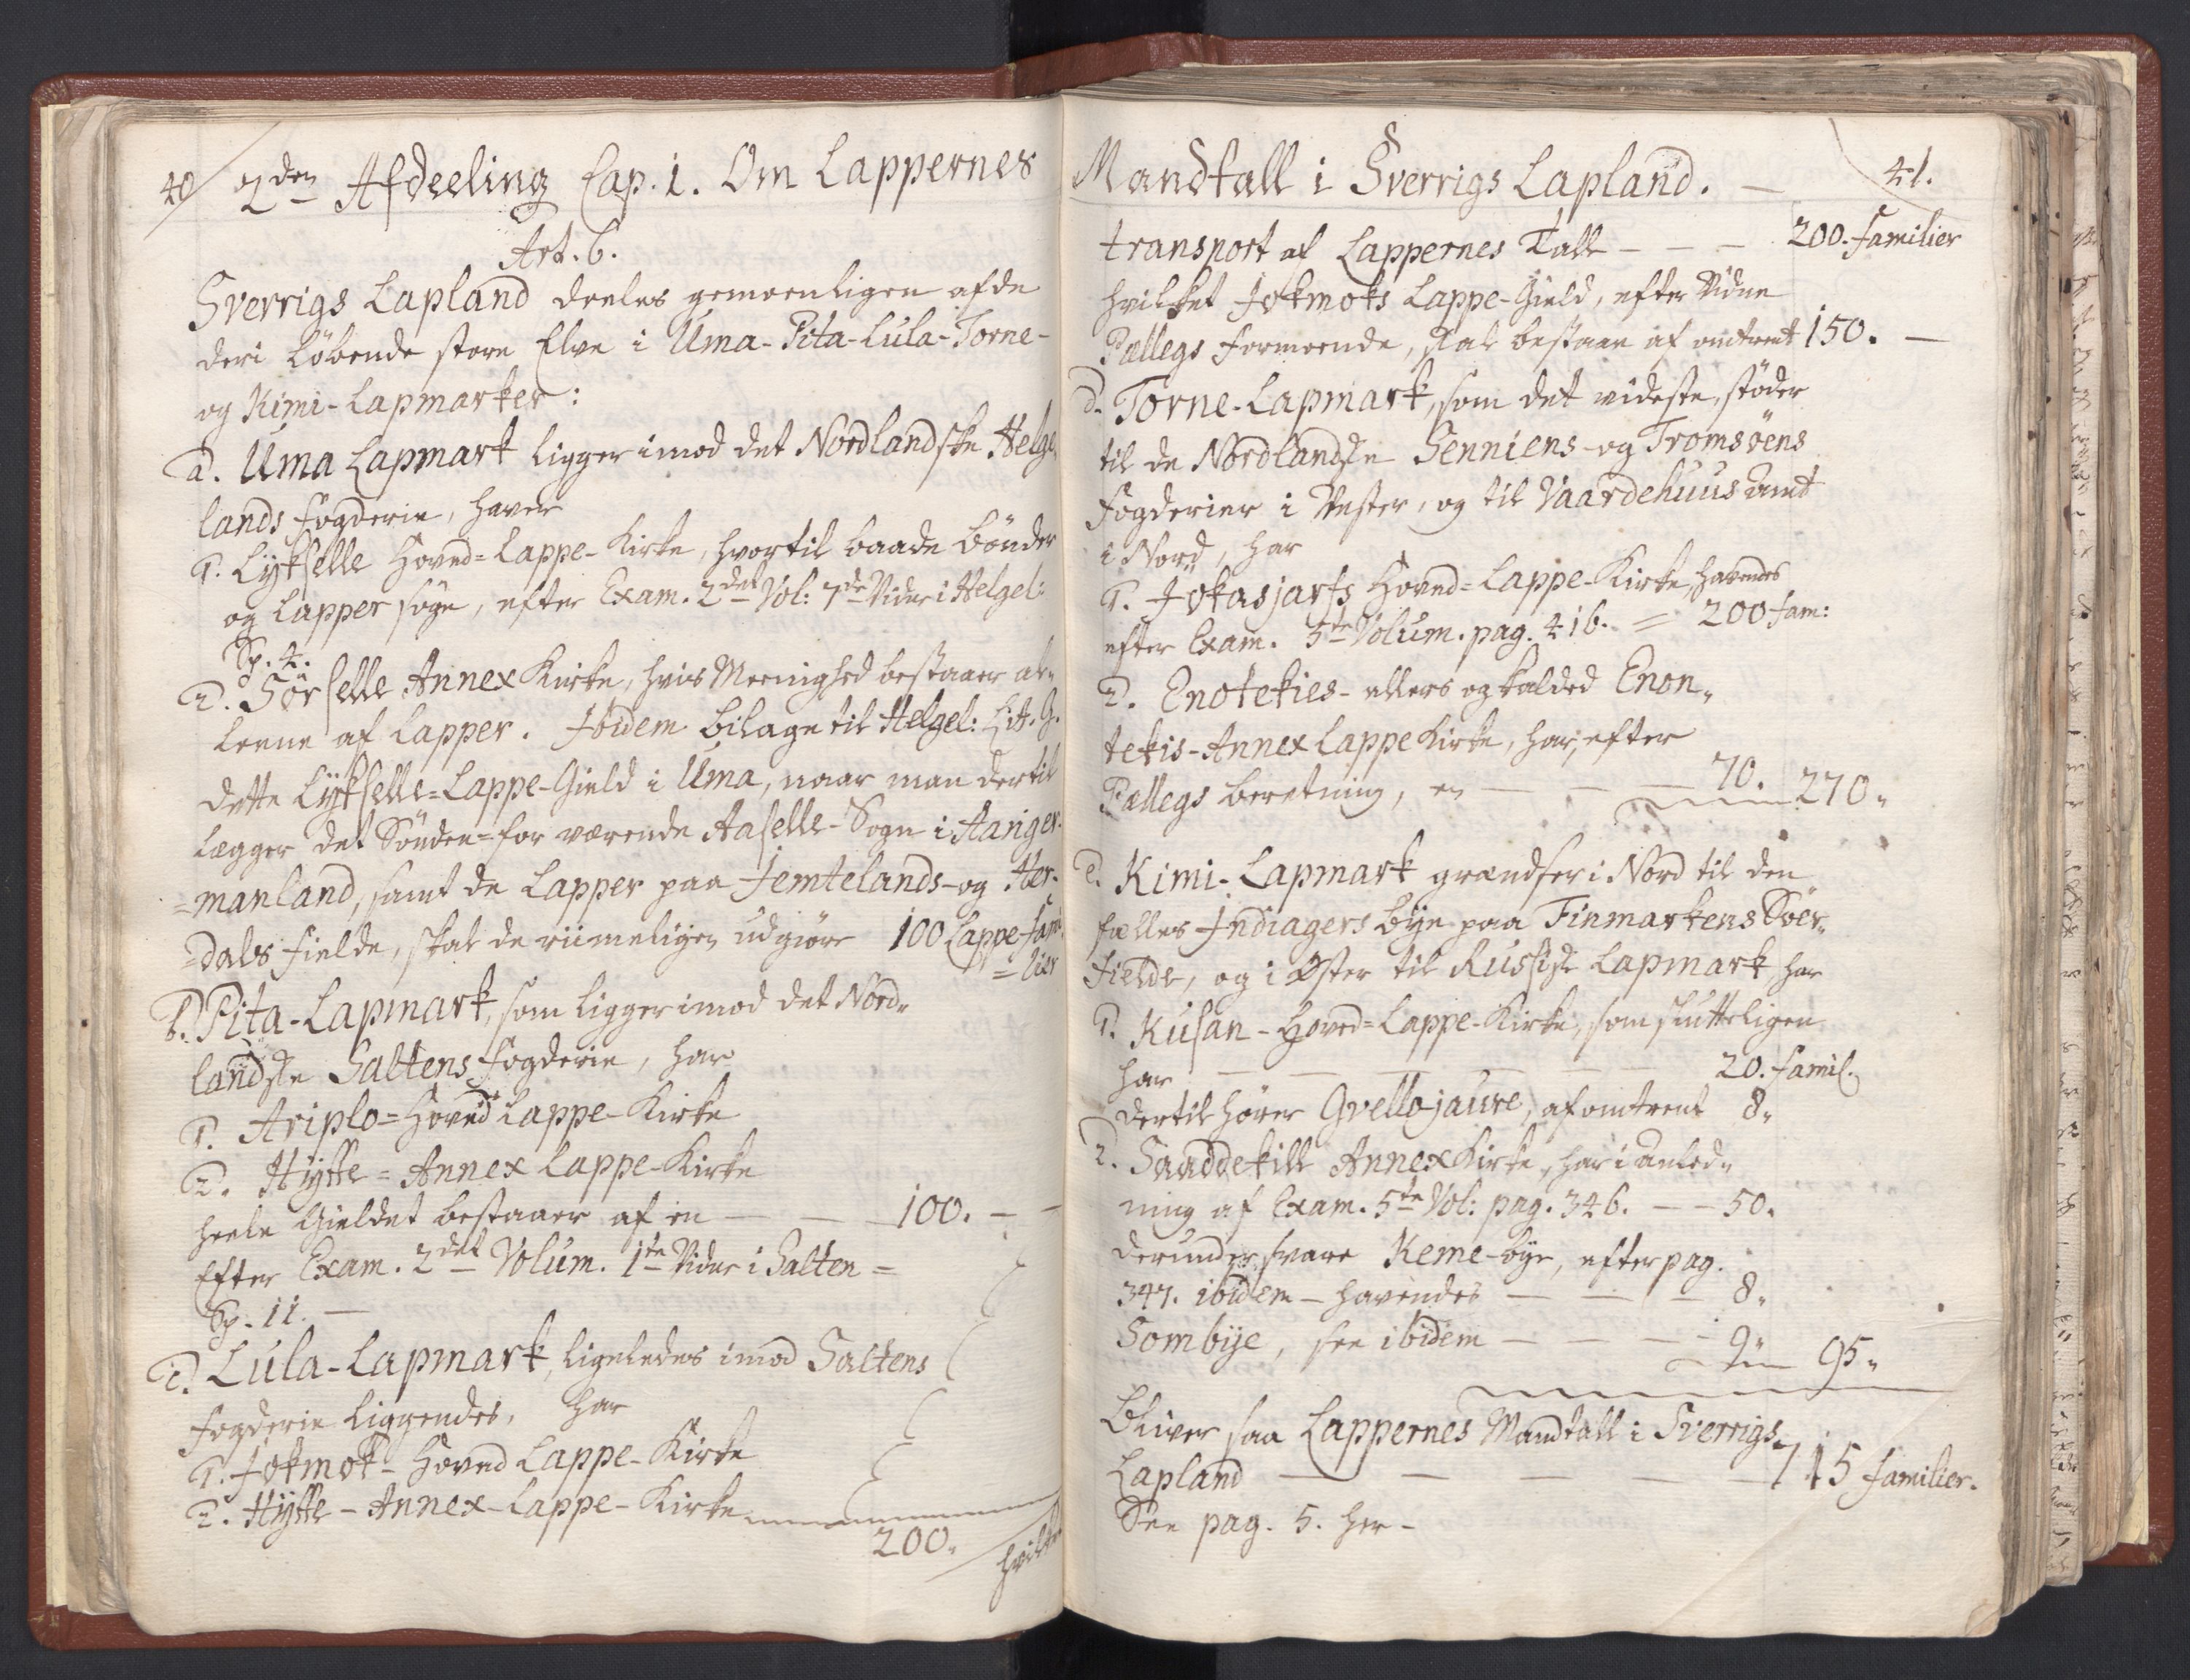 40/ 2den Afdeeling Cap. 1. Om Lappernes
Art. 6.
Sverrigs Lapland deeles gemeenligen af de
deri løbende store Elve i Uma-Pita-Lula-Torne-
og Kimi-Lapmarker:
a. Uma Lapmark ligger imod det Nordlandske Helge,
lands Fogderie, haver
1. Lÿkselle Hoved=Lappe-Kirke, hvortil baade Bønder
og Lapper søge, efter Exam. 2det Vol: 7de Vidne i Helgel:
Sp. 4.
2. Sørselle Annex Kirke, hvis Meenighed bestaaer al„
leene af Lapper. Ibidem bilage til Helgel: Lit. G.
dette Lÿkselle=Lappe-Gield i Uma, naar man dertil
lægger det Sønden=for værende Aaselle-Sogn i Aanger
=manland, samt de Lapper paa Jemtelands-og Her-
=dals Fielde, skal de riimeligen udgiøre 100 Lappe-Fami
=lier
b. Pita-Lapmark, som ligger imod det Nord„
landske Saltens Fogderie, har
1. Ariplo=Hoved Lappe-Kirke
2. Hÿtte=Annex Lappe-Kirke
heele Gieldet bestaaer af en — — 100. — —
Efter Exam. 2det Volum. 1te Vidne i Salten=
Sp. 11. —
c. Lula-Lapmark, ligeledes imod Saltens
Fogderie liggendes, har
1. Jokmok-Hoved Lappe-Kirke
2. Hÿtte-Annex-Lappe-Kirke
200.
hvilket
Mandtall i Sverrigs Lapland. — 41.
transport af Lappernes Tall — — — 200. Familier
hvilket Jokmoks Lappe-Gield, efter Vidne
Pællegs Formeende, skal bestaae af omtrent 150. —
d. Torne-Lapmark, som det videste, støder
til de Nordlandske Senniens-og Tromsøens
Fogderier i Vester, og til Vaardehuus amt
i Nord, har
1. Jokasjarfs Hoved=Lappe-Kirke, havendes
efter Exam. 5te Volum. pag. 416. = 200 Fam:
2. Enotekies- ellers og kalded Enon„
tekis-Annex Lappe Kirke, har, efter
Pællegs beretning, en — — — 70. 270„
e. Kimi-Lapmark grændser i Nord til den
fælles Indiagers bÿe paa Finmarkens Søer„
Fielde, og i Øster til Russisk Lapmark har
1. Kusan-Hoved=Lappe-Kirke, som skutteligen
har — — — — — 20. Famil.
dertil hører Gvellojaure, af omtrent 8„
2. Saaddekill Annex Kirke, har i anled„
ning af Exam. 5te Vol: pag. 346. — — 50.
derunder svare Keme-bÿe, efter pag.
347. ibidem — havendes — — — 8„
Sombÿe, see ibidem — — — 9„ 95„
Bliver saa Lappernes Mandtall i Sverrigs
Lapland — — — — 715 Familier.
See pag. 5. her-